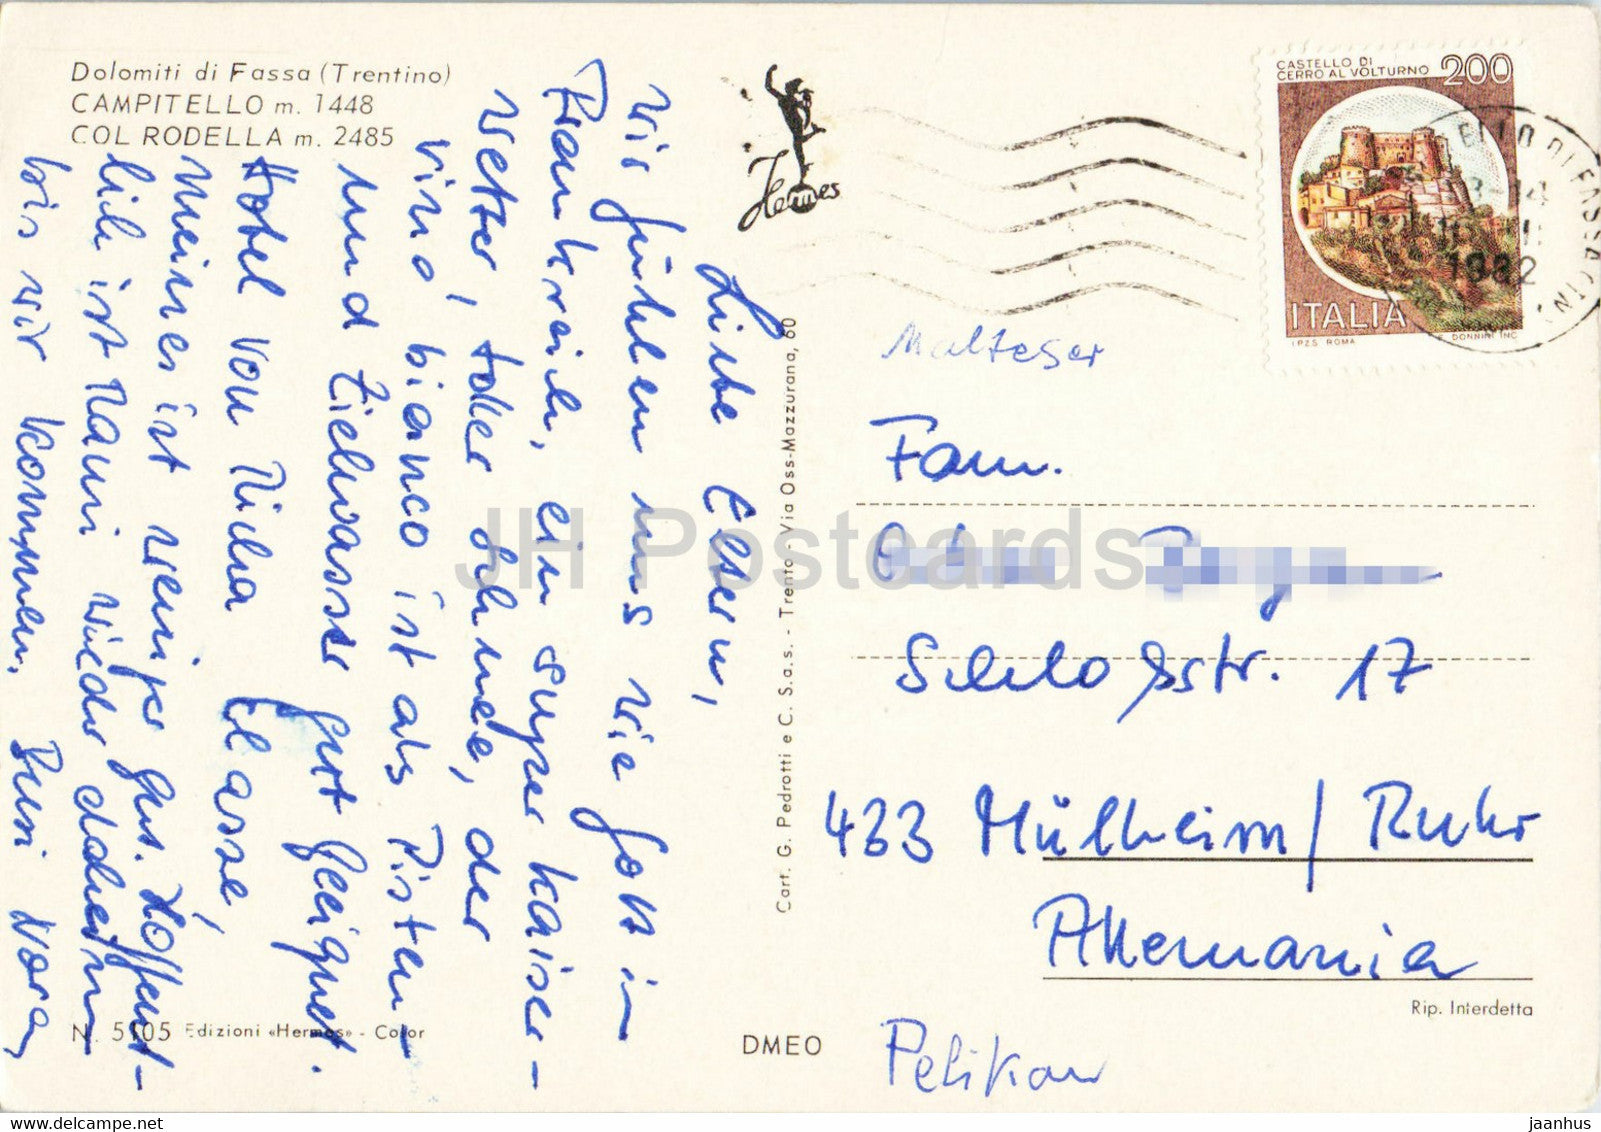 Dolomiti di Fassa (Trentino)
CAMPITELLO m. 1448
COL RODELLA m. 2485
Hermes
CASTELLO DI
CERRO AL VOLTURNO 200
ITALIA
I.P.Z.S. ROMA
DONNINI INC.
1982
Liebe Eltern,
wir fühlen uns wie Gott in
Frankreich, ein super Kaiser-
wetter, toller Schnee, der
vino bianco ist als Pisten-
und Ziehwasser gut geeignet.
Hotel von Micha Klasse,
meines ist weniger gut. Hoffent-
lich ist Mami wieder daheim
bis wir kommen. Bussi Nora
Malteser
Fam.
Schloßstr. 17
433 Mülheim/Ruhr
Allemania
Pelikan
Rip. Interdetta
Cart. G. Pedrotti e C. S.a.s. - Trento - Via Oss-Mazzurana, 60
N. 5105 Edizioni «Hermes» - Color
DMEO
JH Postcards
delcampe.net
jaanhus